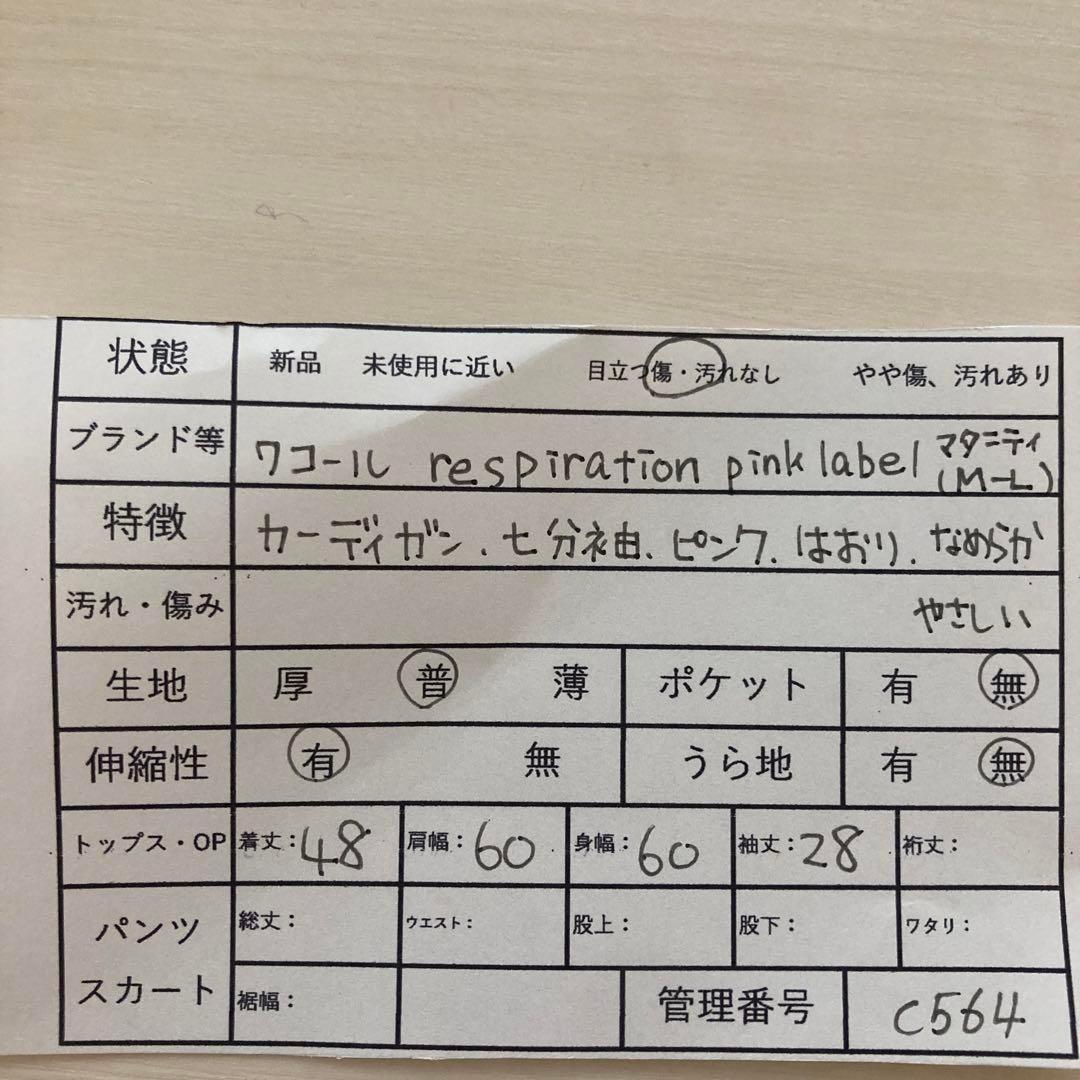 状態 新品 未使用に近い 目立つ傷・汚れなし やや傷、汚れあり
ブランド等 ワコール respiration pink label マタニティ (M-L)
特徴 カーディガン、七分袖、ピンク、はおり、なめらか
汚れ・傷み やさしい
生地 厚 普 薄 ポケット 有 無
伸縮性 有 無 うら地 有 無
トップス・OP 着丈:48 肩幅:60 身幅:60 袖丈:28 裄丈:
パンツ スカート 総丈: ウエスト: 股上: 股下: ワタリ:
裾幅: 管理番号 C564